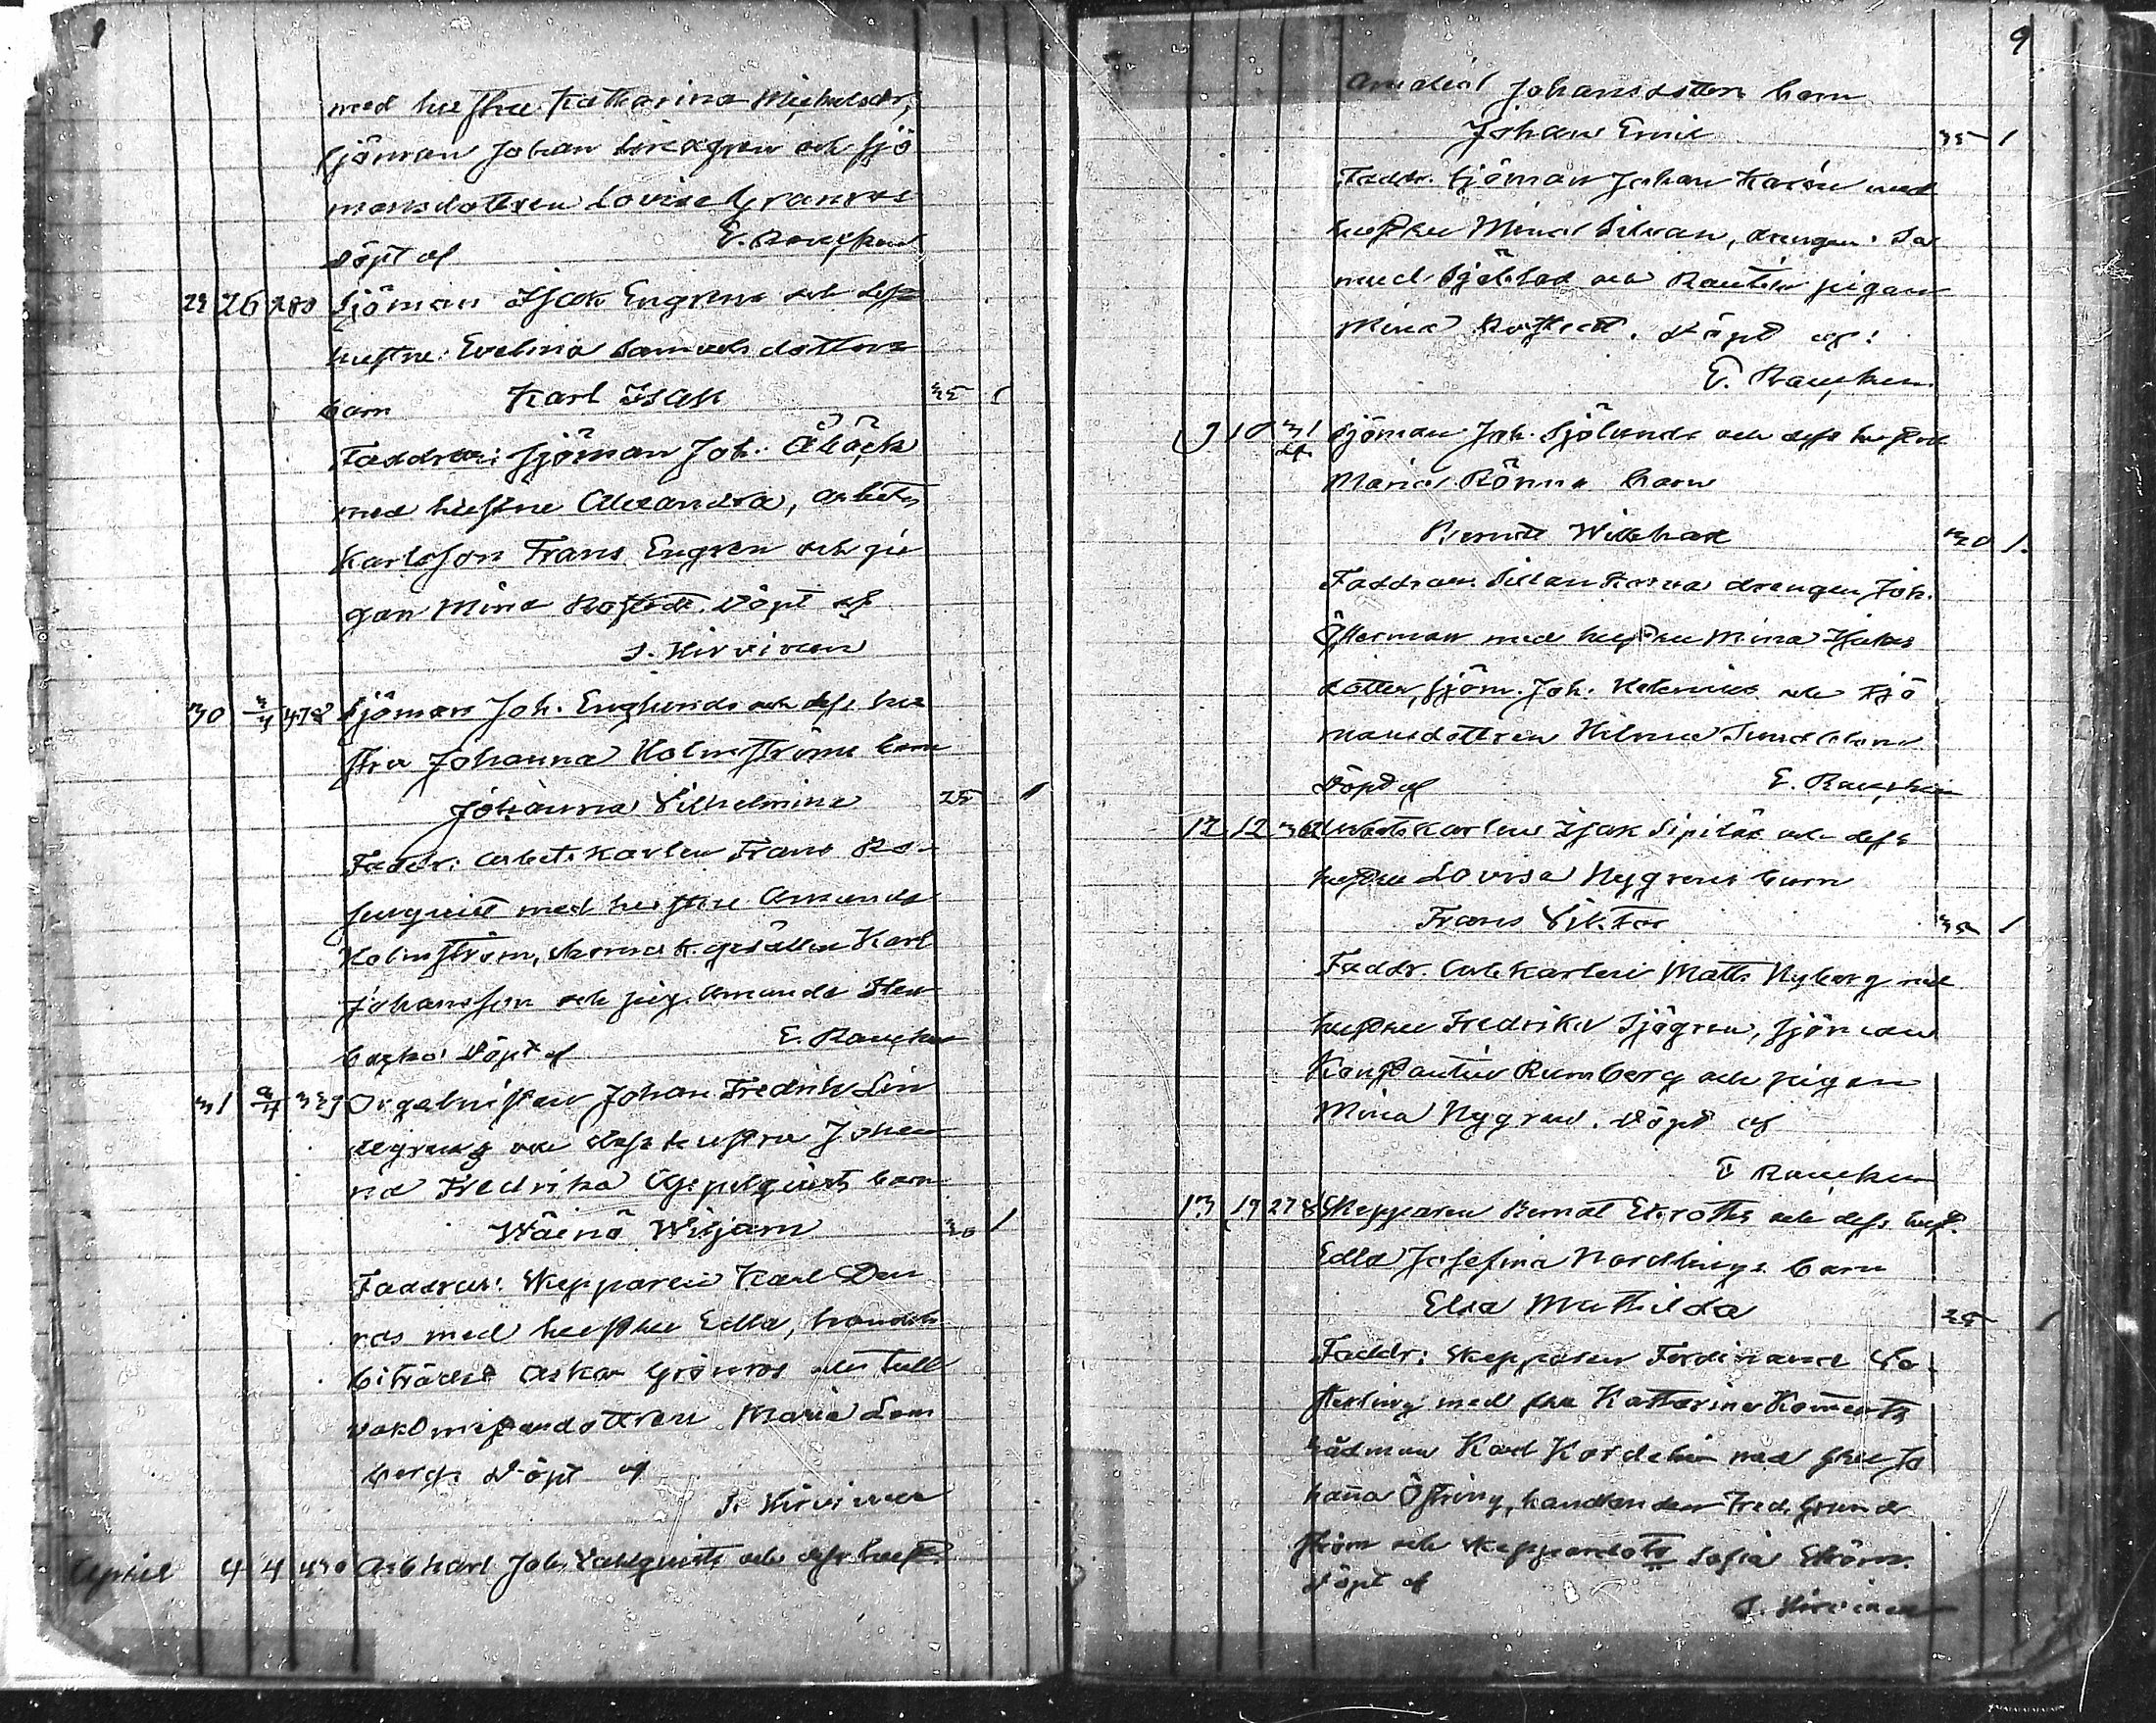 med hustru Katharina Michelsdr,
sjöman Johan Lindgren och sjö
mansdottren Lovisa Granroos
Döpt af E. Rancken
29 26 280 Sjöman Isak Engrens och dess
hustru Evelina Samuelsdotters
barn Karl Isak 35 1
Faddrar: sjöman Joh. Åbäck
med hustru Alexandra, arbets
karlsson Frans Engren och pi
gan Mina Rostedt. Döpt af
J. Hirvinen
30 3/4 478 Sjöman Joh. Englunds och dess hu
stru Johanna Holmströms barn
Johanna Vilhelmina 25 1
Faddr: arbetskarlen Frans Ro
senqvist med hustru Amanda
Holmström, gesällen Karl
Johansson och pig. Amanda Sten
backa Döpt af E. Rancken
31 2/4 339 Orgelnisten Johan Fredrik Lin
degrens och dess hustru Johan
na Fredrika Appelqvists barn
Wäinö Wiljam 30 1
Faddrar: Skepparen Karl Den
ros med hustru Edla, handels
biträdet Oskar Grönros och tull
vaktmistaredottren Maria Lem
berg. Döpt af
J. Hirvinen
April 4 4 430 Arbkarl Joh. Dahlqvists och dess hust.
9
Amalia Johansdotters barn
Johan Emil 35 1
Faddr. Sjöman Johan Karén med
hustru Mina Silvan, drengen Sa
muel Sjöblad och pigan
Mina Rostedt. Döpt af:
E. Rancken
9 10 31 Sjöman Joh. Sjölunds och dess hustrus
Maria Rönns barn
Berndt Willehad 30 1.
Faddrar: drengen Joh.
Österman med hustru Mina Isaks
dotter, sjöm. Joh. och sjö
mansdottren Hilma Sundblom
Döpt af E. Rancken
12 12 Arbetskarlen Isak Sipiläs och dess
hustru Lovisa Nygrens barn
Frans Viktor 35 1
Faddr. Arbkarlen Matts Nyberg med
hustru Fredrika Sjögren, sjöman
Konstantin Rumberg och pigan
Mina Nygren. Döpt af
E Rancken
13 19 278 Skepparen Bernat Ekroths och dess hust.
Edla Josefina Nordlings barn
Elsa Mathilda 25 1
Faddr: Skepparen Ferdinand
med fru Katharina
rådman Karl Kordelin med fru Jo
hanna Östring, handlanden Fred. Grund
ström och skepparedotr Sofia Ström.
Döpt af
J. Hirvinen